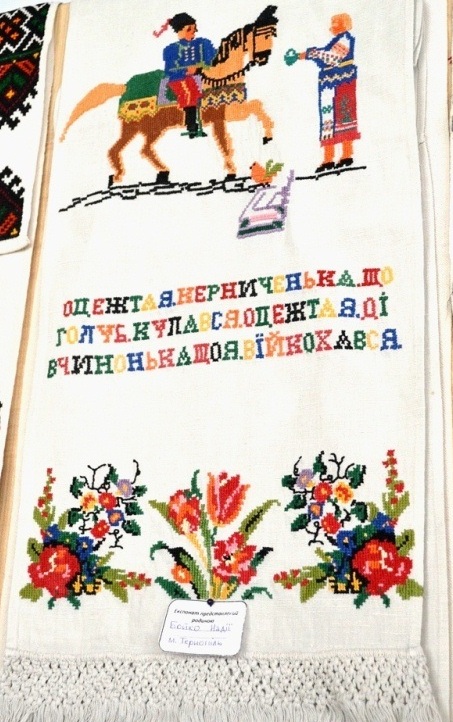 ОДЕЖТАЯ.КЕРНИЧЕНЬКА.ЩО
ГОЛУБ.КУПАВСЯ.ОДЕЖТАЯ.ДІ
ВЧИНОНЬКАЩОЯ.ВЇЙКОХАВСЯ.
Експонат представлений
родиною
Бойко Надії
м. Тернопіль